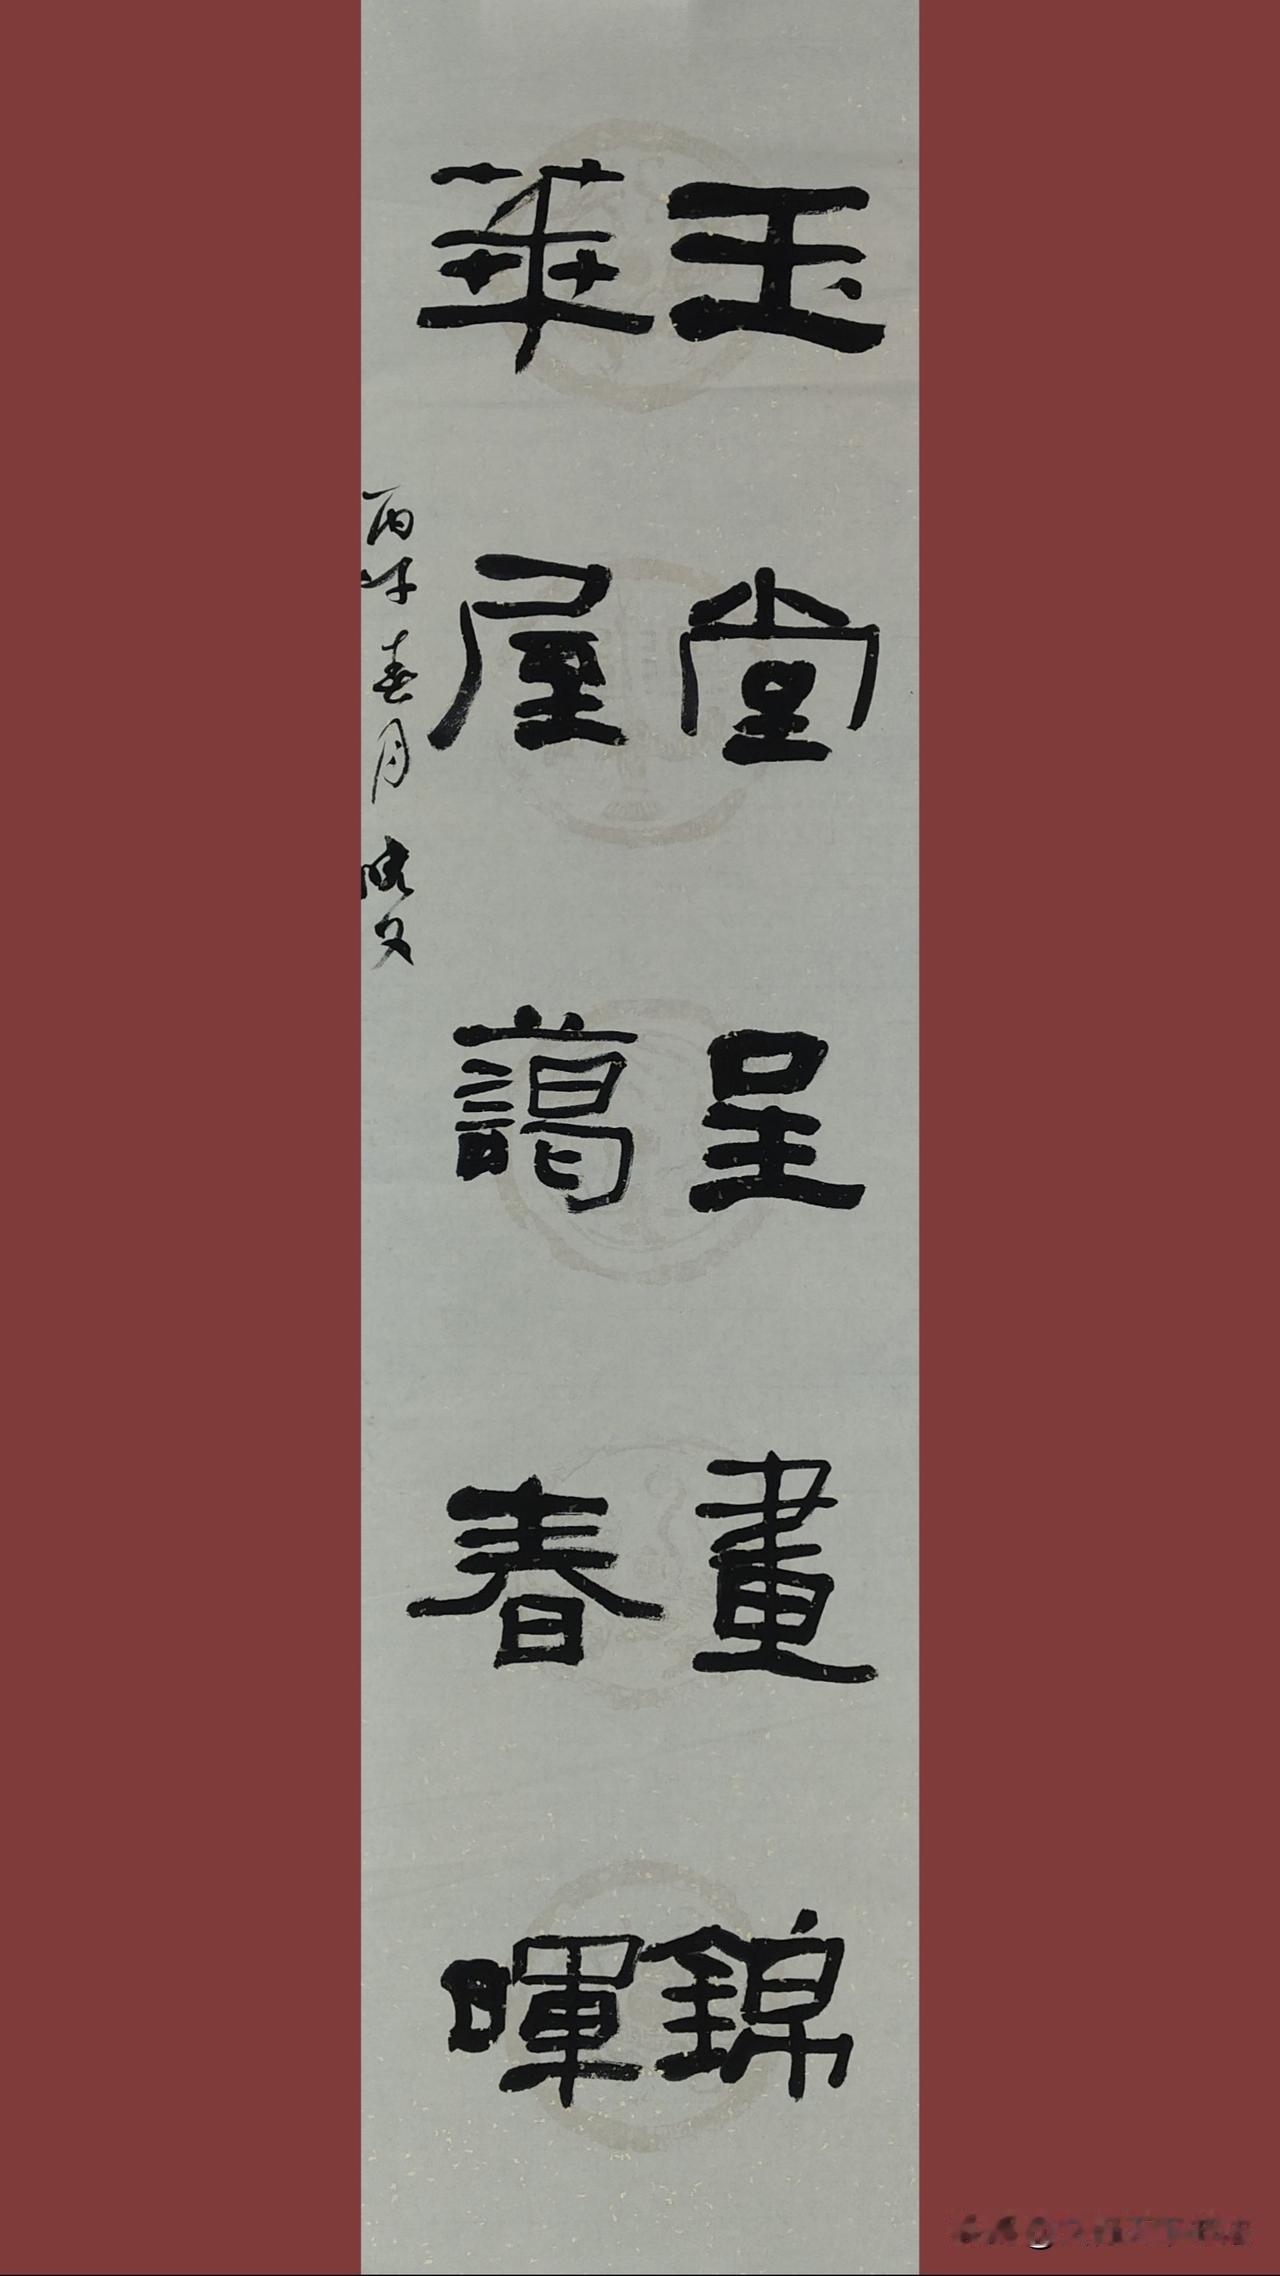 玉堂呈畫錦
華屋藹春暉
丙午春月